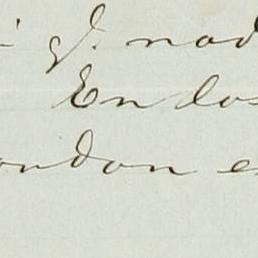 í J. nad
En los
ondon e